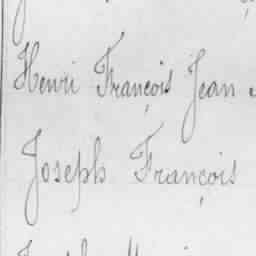 Henri François Jean
Joseph François